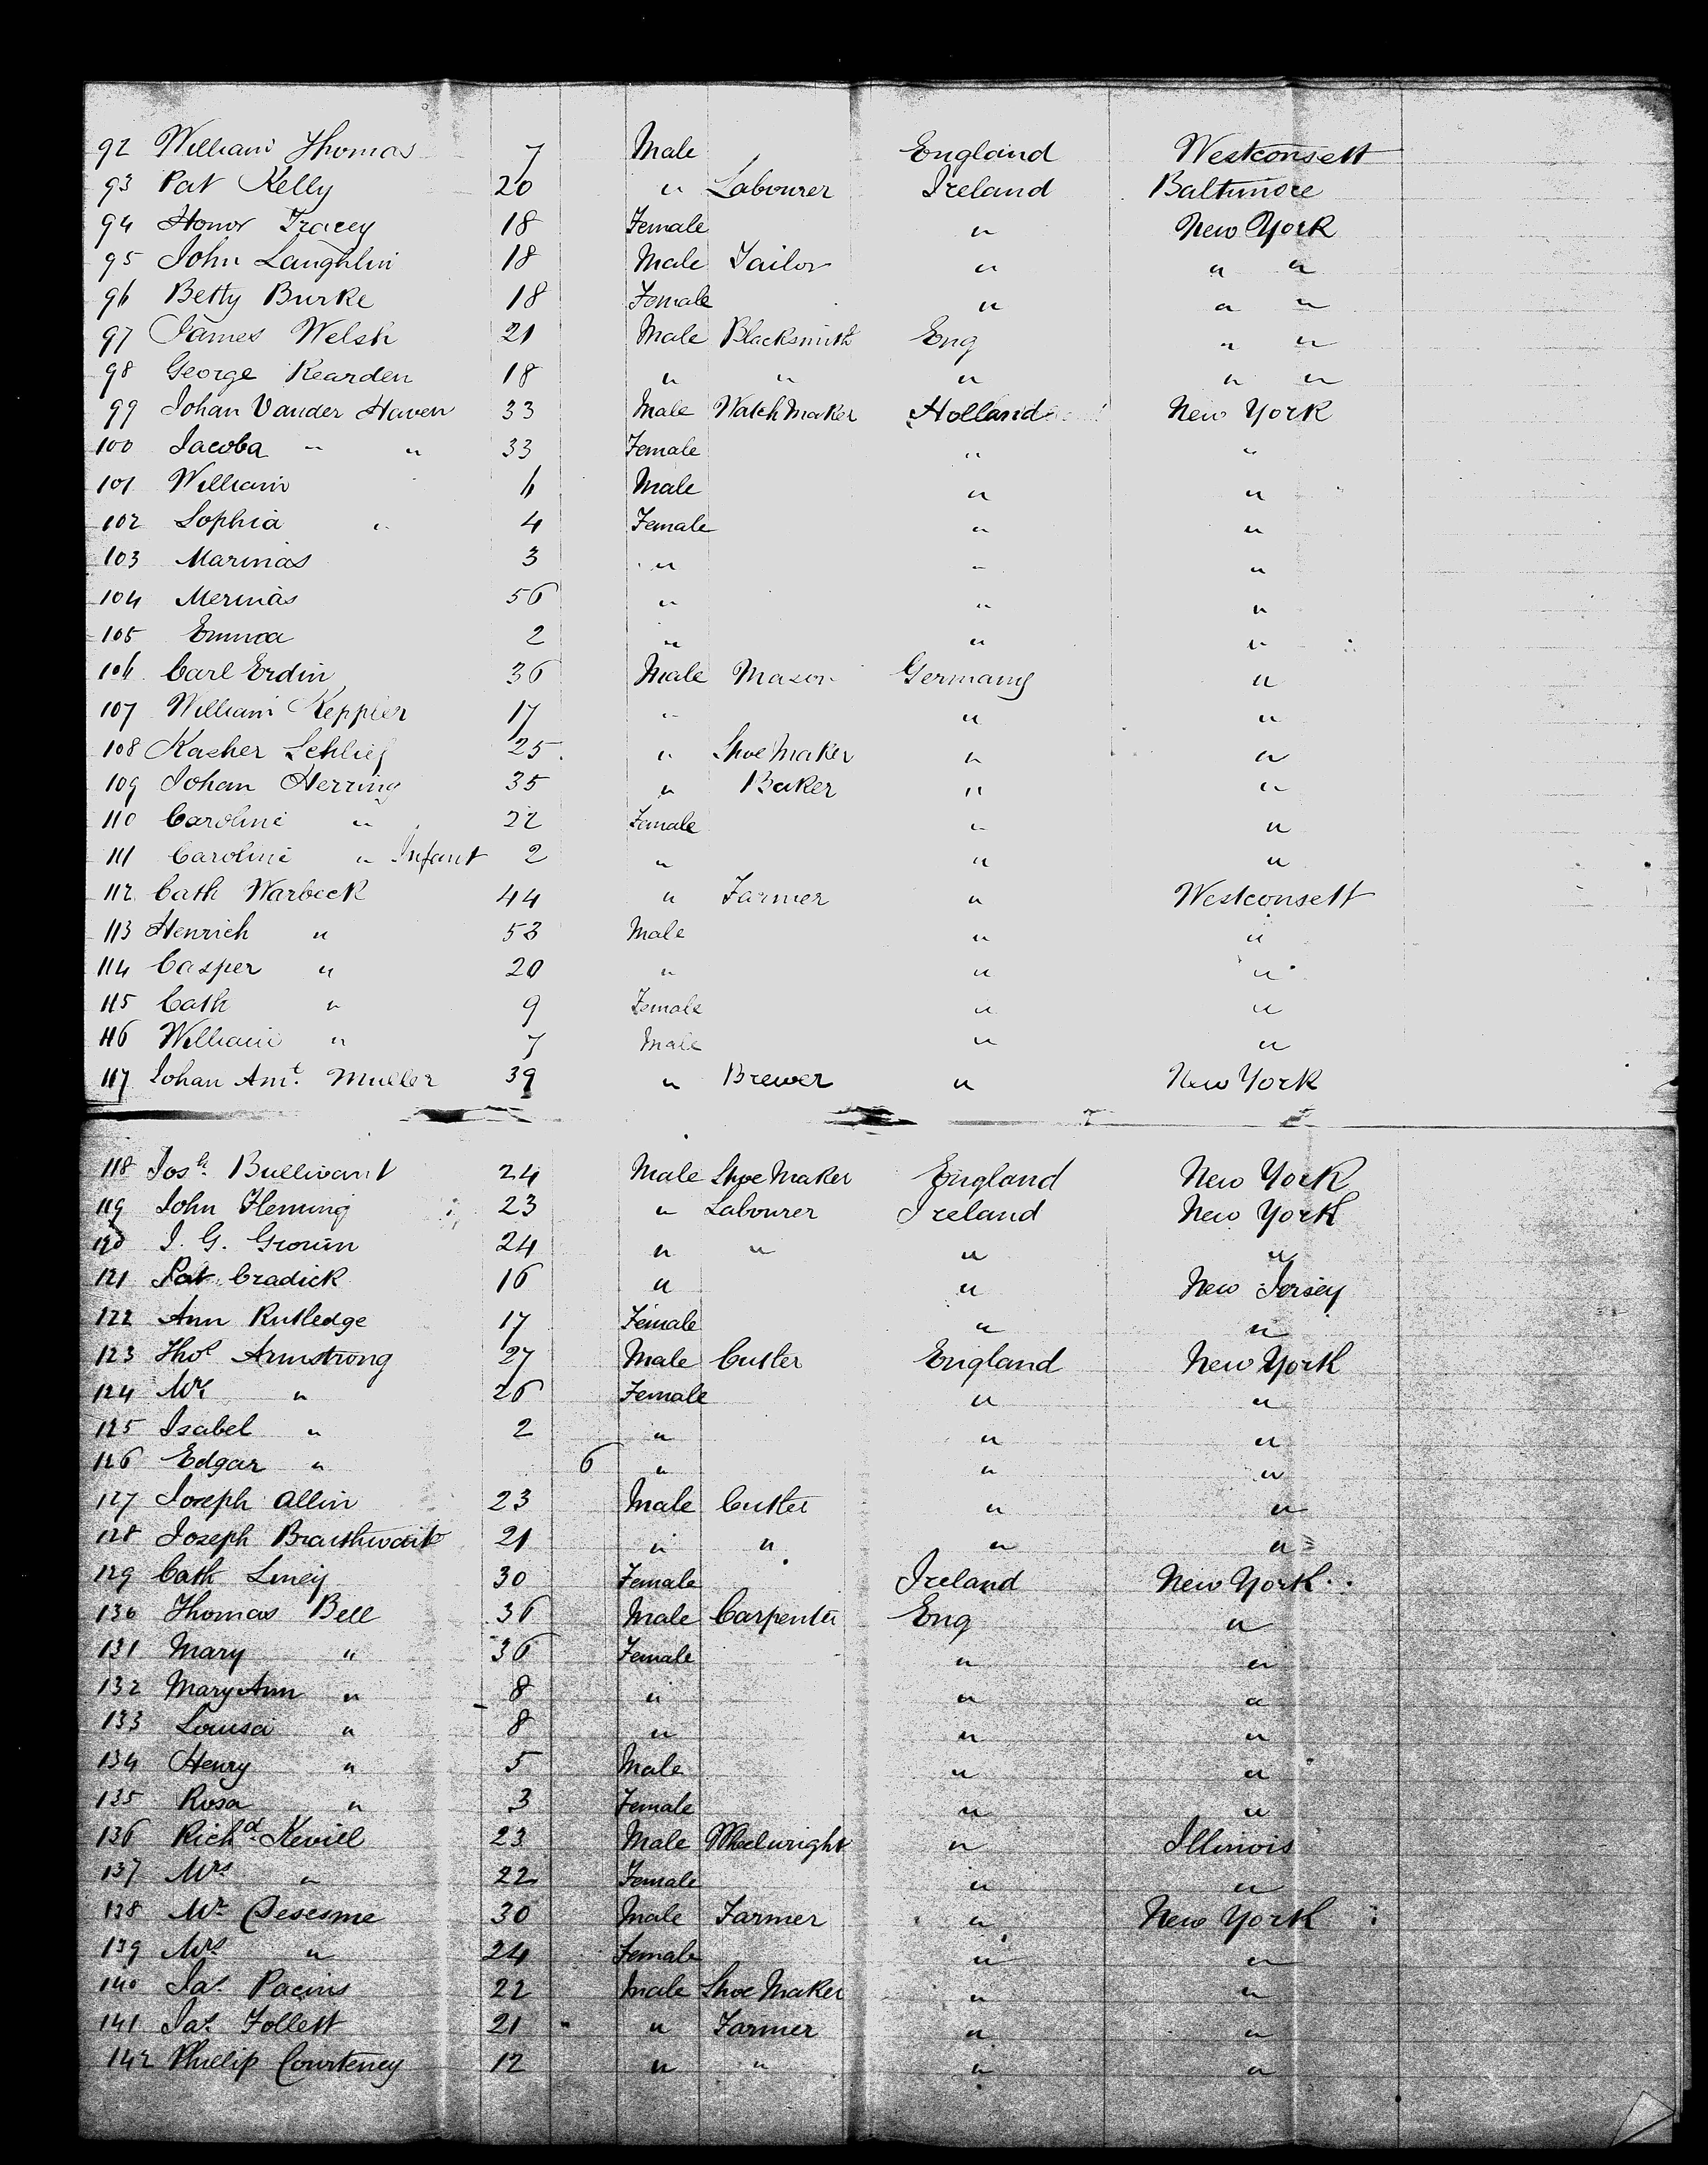 92 William Thomas 7 Male England Westconsett
93 Pat Kelly 20 " Labourer Ireland Baltimore
94 Honor Tracey 18 Female " New York
95 John Laughlin 18 Male Tailor " " "
96 Betty Burke 18 Female " " "
97 James Welsh 21 Male Blacksmith Eng " "
98 George Rearden 18 " " " " "
99 Johan Vander Haven 33 Male Watch Maker Holland New York
100 Jacoba " " 33 Female " "
101 William 6 Male " "
102 Sophia " 4 Female " "
103 Marinas 3 " " "
104 Merinas 56 " " "
105 Emma 2 " " "
106 Carl Erdin 36 Male Mason Germany "
107 William Keppier 17 " " "
108 Kasher Schlief 25 " Shoe Maker " "
109 Johan Herring 35 " Baker " "
110 Caroline " 22 Female " "
111 Caroline " Infant 2 " " "
112 Cath Warbeck 44 " Farmer " Westconsett
113 Henrich " 53 Male " "
114 Casper " 20 " " "
115 Cath " 9 Female " "
116 William " 7 Male " "
117 Johan Amt. Muller 39 " Brewer " New York
118 Josh. Bullivant 24 Male Shoe Maker England New York
119 John Fleming 23 " Labourer Ireland New York
120 J. G. Gronin 24 " " " "
121 Pat Cradick 16 " " New Jersey
122 Ann Rutledge 17 Female " "
123 Thos Armstrong 27 Male Cutler England New York
124 Mrs " 26 Female " "
125 Isabel " 2 " " "
126 Edgar " 6 " " "
127 Joseph Allin 23 Male Cutler " "
128 Joseph Braithwaite 21 " " " "
129 Cath Liney 30 Female Ireland New York
130 Thomas Bell 36 Male Carpenter Eng "
131 Mary " 36 Female " "
132 Mary Ann " 8 " " "
133 Lousa " 8 " " "
134 Henry " 5 Male " "
135 Rosa " 3 Female " "
136 Richd. Kevill 23 Male Wheelwright " Illinois
137 Mrs " 22 Female " "
138 Mr 30 Male Farmer " New York
139 Mrs " 24 Female " "
140 Jas. Pacins 22 Male Shoe Maker " "
141 Jas. Follett 21 " Farmer " "
142 Phillip Courteney 12 " " " "